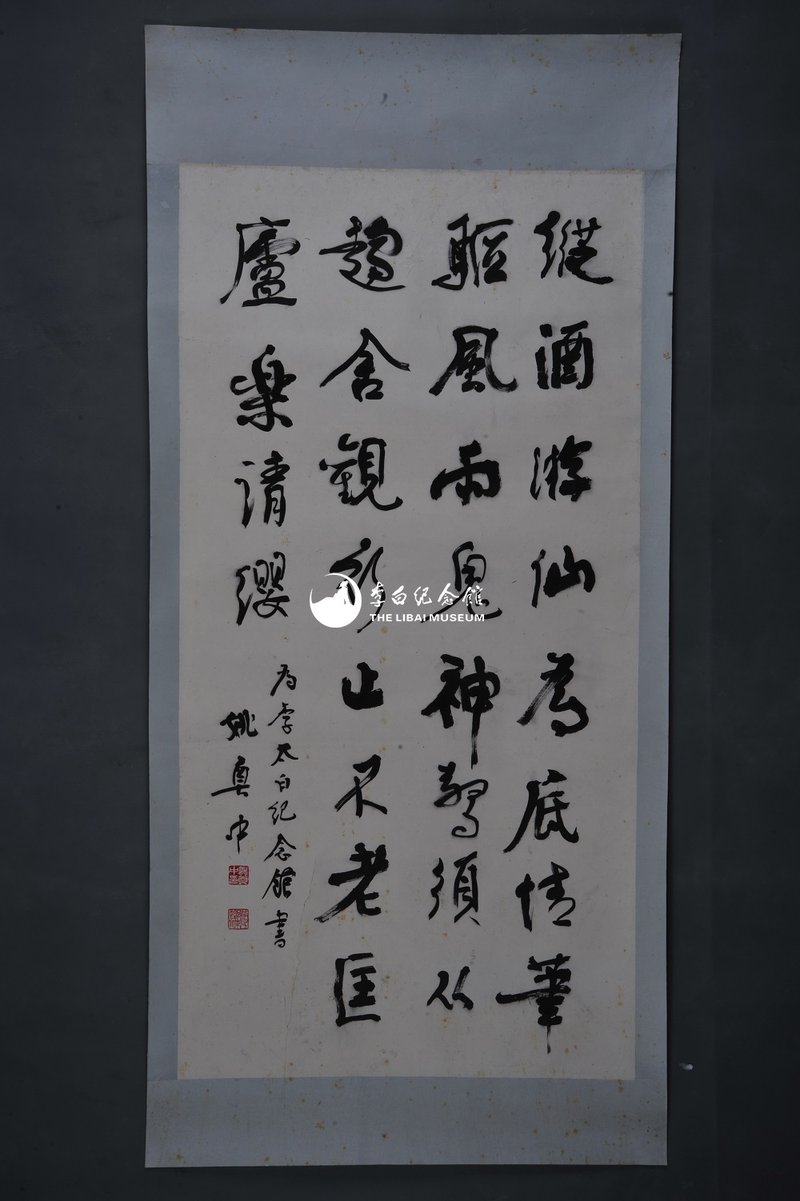 縱酒游仙為底情筆
驅風雨鬼神驚須從
趨舍觀行止不老匡
廬樂請纓
為李太白紀念館書
姚奠中
李白纪念馆
THE LIBAI MUSEUM